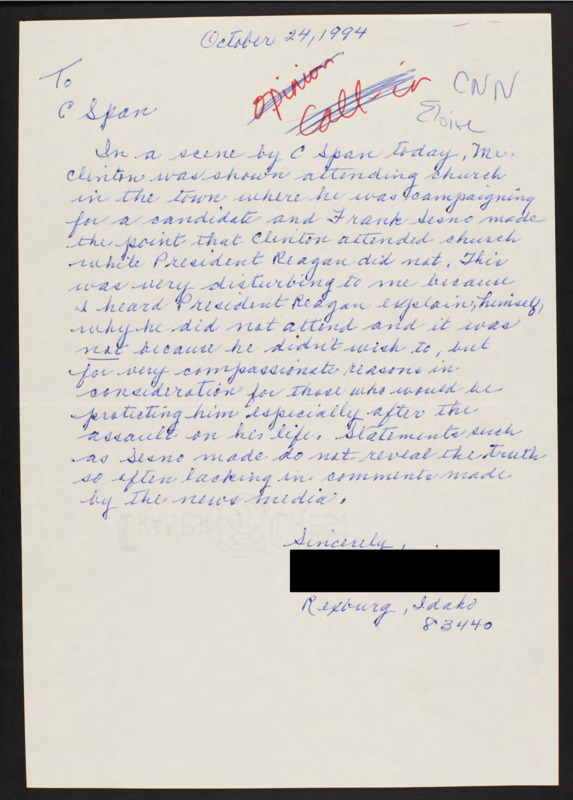 October 24, 1994
To
C Span
Opinion
Call-in
CNN
Eloise
In a scene by C Span today, Mr.
Clinton was shown attending church
in the town where he was campaigning
for a candidate and Frank Sesno made
the point that Clinton attended church
while President Reagan did not. This
was very disturbing to me because
I heard President Reagan explain, himself,
why he did not attend and it was
not because he didn't wish to, but
for very compassionate reasons in
consideration for those who would be
protecting him especially after the
assault on his life. Statements such
as Sesno made do not reveal the truth
so often lacking in comments made
by the news media.
Sincerely,
Rexburg, Idaho
83440